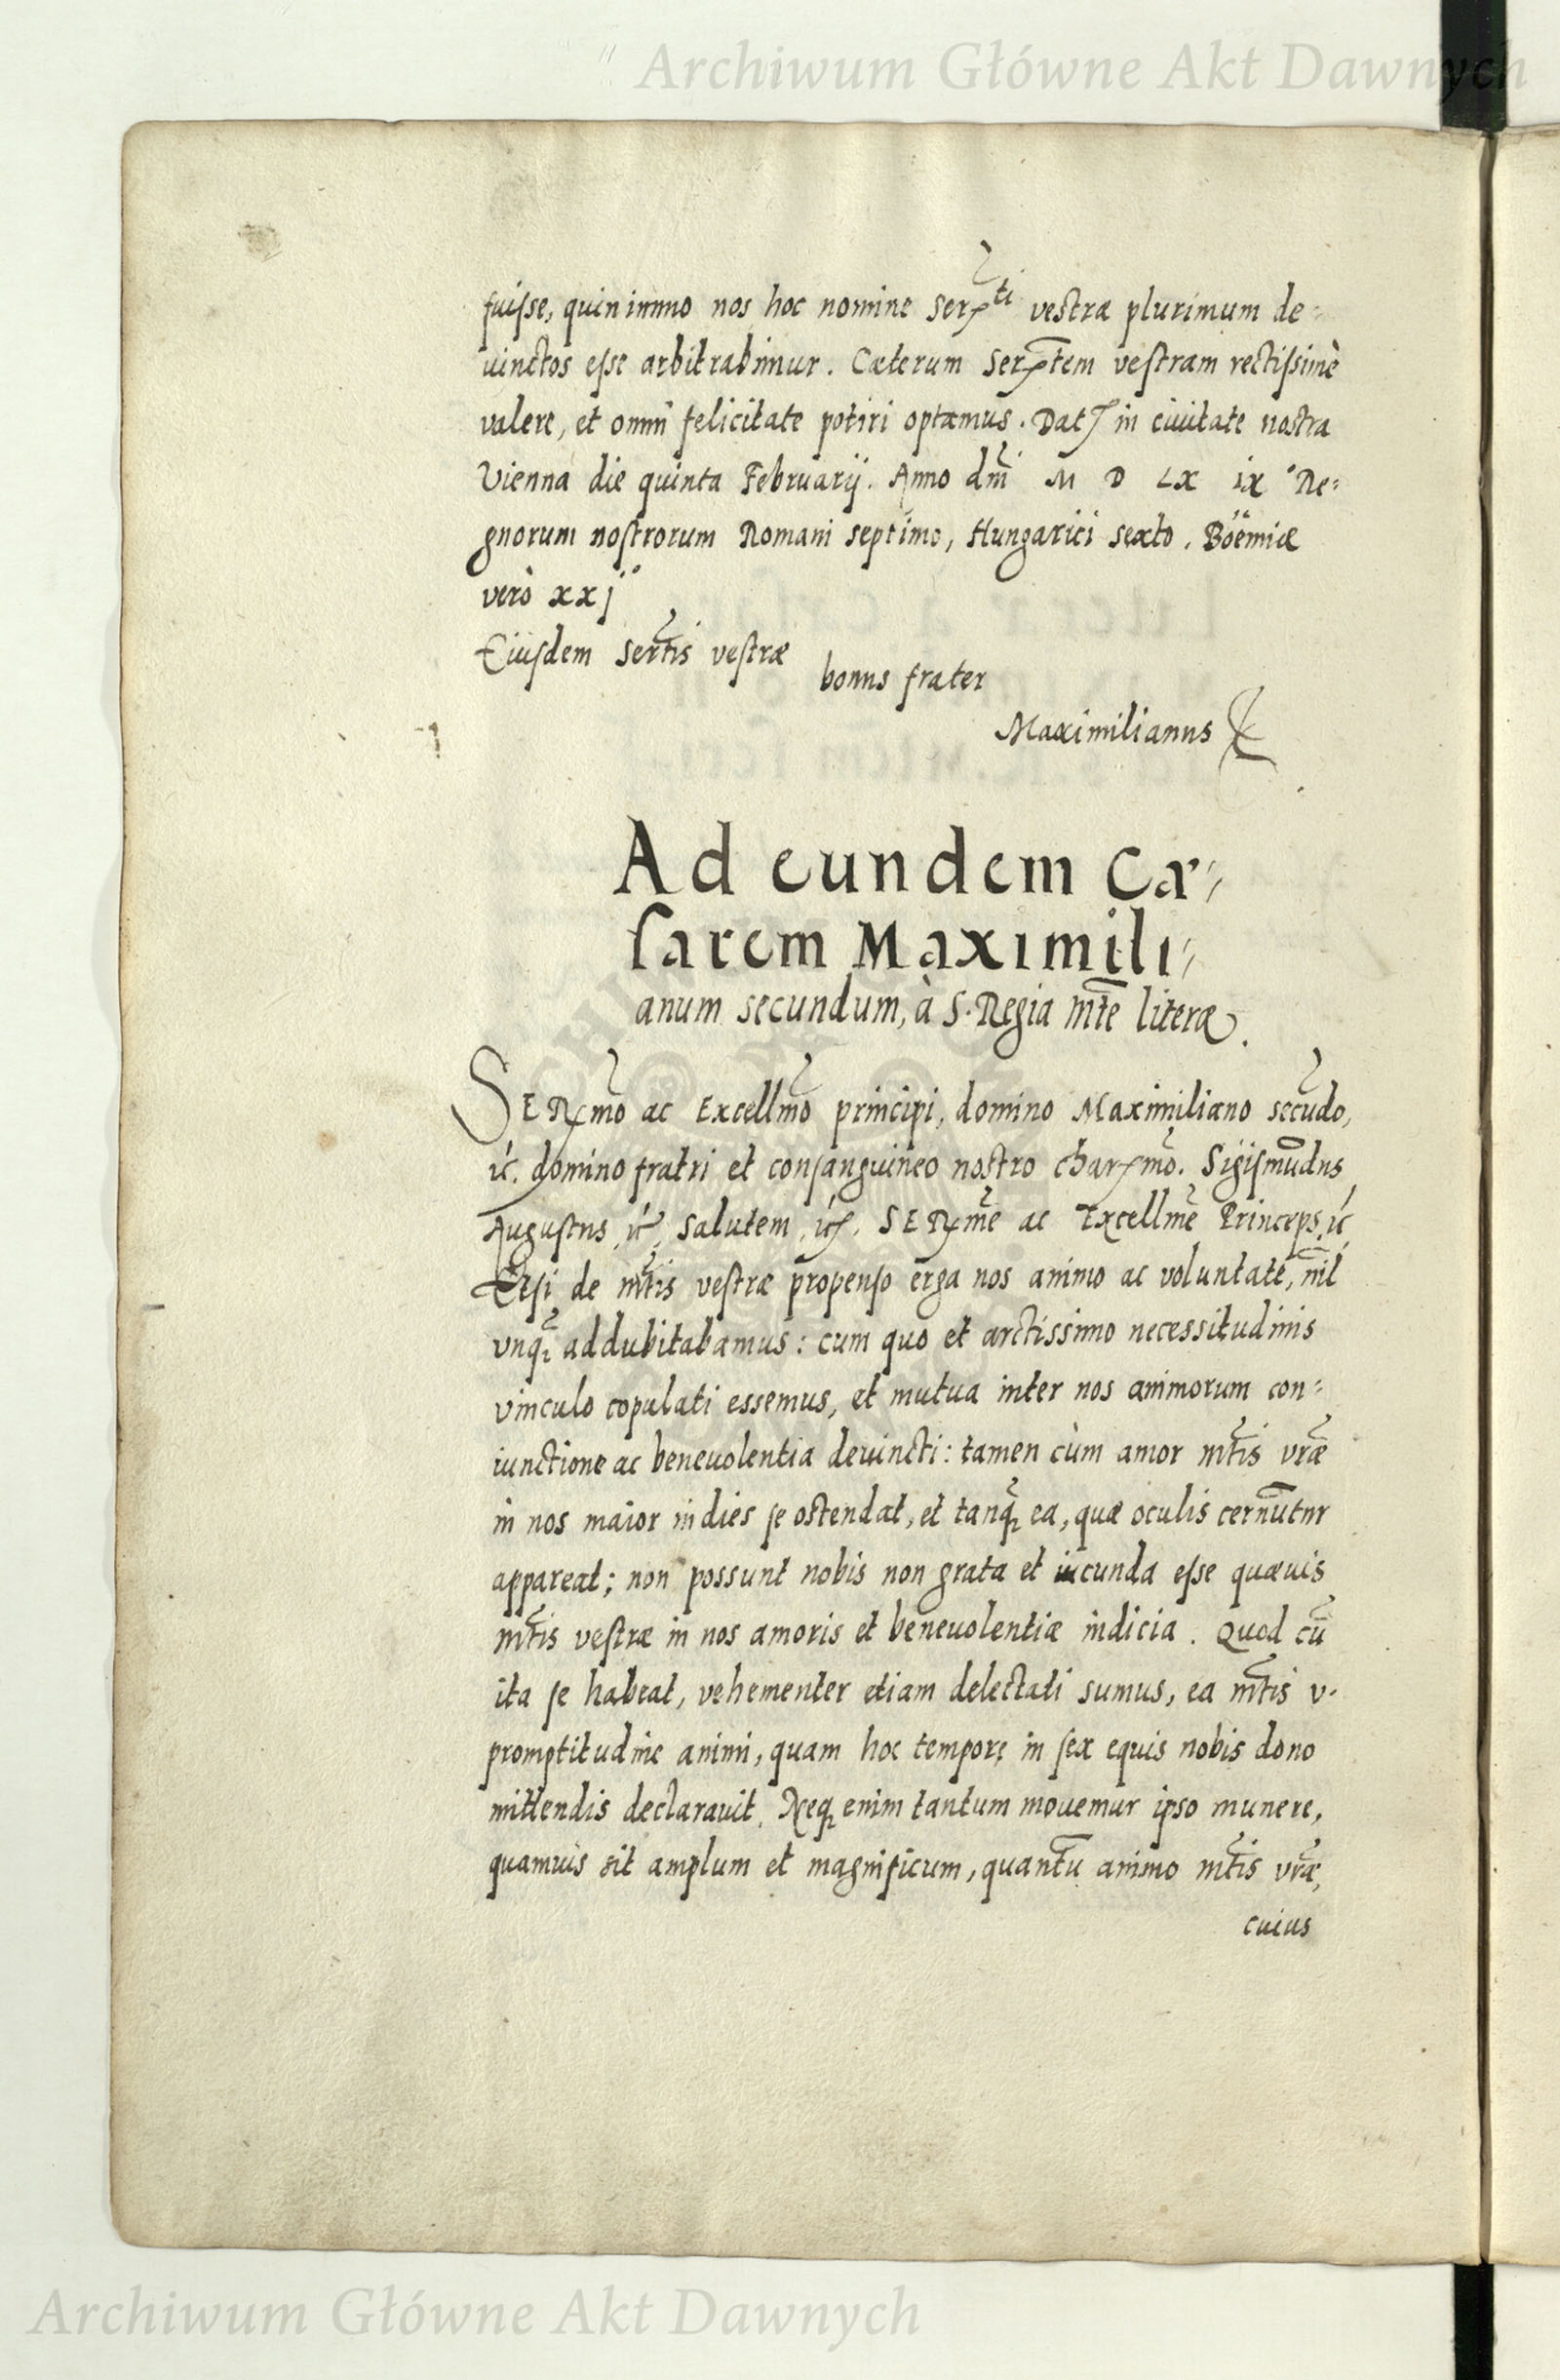 Archiwum Główne Akt Dawnych
fuisse, quinimmo nos hoc nomine Ser.ti vestræ plurimum de=
uinctos esse arbitrabimur. Cæterum Ser.tem vestram rectissimè
valere, et omni felicitate potiri optamus. Dat. in ciuitate nostra
Vienna die quinta Februarij. Anno dñi M D LX ix Re=
gnorum nostrorum Romani septimo, Hungarici sexto, Boëmiæ
verò xxj
Eiusdem Sertis vestræ
bonus frater
Maximilianus
Ad eundem Cæ=
sarem Maximili=
anum secundum, à S. Regia Mte literæ.
SERmo ac Excellmo principi, domino Maximiliano secūdo,
ic. domino fratri et consanguineo nostro charmo. Sigismūdus
Augustus, ic, Salutem, ic. SERme ac Excellme Princeps, ic
Etsi de mtis vestræ propenso erga nos animo ac voluntate, nil
vnq̃ addubitabamus: cum quo et arctissimo necessitudinis
vinculo copulati essemus, et mutua inter nos animorum con=
iunctione ac beneuolentia deuincti: tamen cùm amor mtis vræ
in nos maior indies se ostendat, et tanq̃ ea, quæ oculis cernūtur
appareat; non possunt nobis non grata et iucunda esse quæuis
mtis vestræ in nos amoris et beneuolentiæ indicia. Quod cū
ita se habeat, vehementer etiam delectati sumus, ea mtis v.
promptitudine animi, quam hoc tempore in sex equis nobis dono
mittendis declarauit. Neq; enim tantum mouemur ipso munere,
quamuis sit amplum et magnificum, quantū animo mtis vræ,
cuius
Archiwum Główne Akt Dawnych